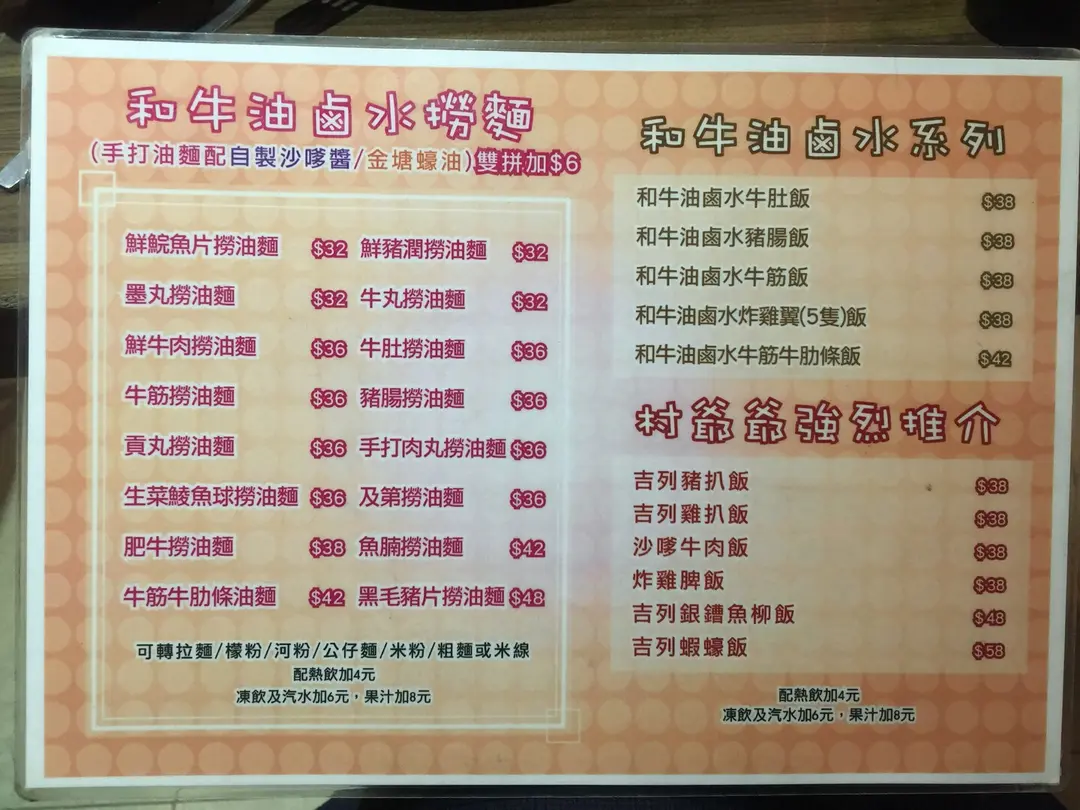 和牛油鹵水撈麵
(手打油麵配自製沙嗲醬/金塘蠔油)雙拼加$6
鮮鯇魚片撈油麵 $32 鮮豬潤撈油麵 $32
墨丸撈油麵 $32 牛丸撈油麵 $32
鮮牛肉撈油麵 $36 牛肚撈油麵 $36
牛筋撈油麵 $36 豬腸撈油麵 $36
貢丸撈油麵 $36 手打肉丸撈油麵 $36
生菜鯪魚球撈油麵 $36 及第撈油麵 $36
肥牛撈油麵 $38 魚腩撈油麵 $42
牛筋牛肋條油麵 $42 黑毛豬片撈油麵 $48
可轉拉麵/檬粉/河粉/公仔麵/米粉/粗麵或米線
配熱飲加4元
凍飲及汽水加6元，果汁加8元
和牛油鹵水系列
和牛油鹵水牛肚飯 $38
和牛油鹵水豬腸飯 $38
和牛油鹵水牛筋飯 $38
和牛油鹵水炸雞翼(5隻)飯 $38
和牛油鹵水牛筋牛肋條飯 $42
村爺爺強烈推介
吉列豬扒飯 $38
吉列雞扒飯 $38
沙嗲牛肉飯 $38
炸雞髀飯 $38
吉列銀鱈魚柳飯 $48
吉列蝦蠔飯 $58
配熱飲加4元
凍飲及汽水加6元，果汁加8元